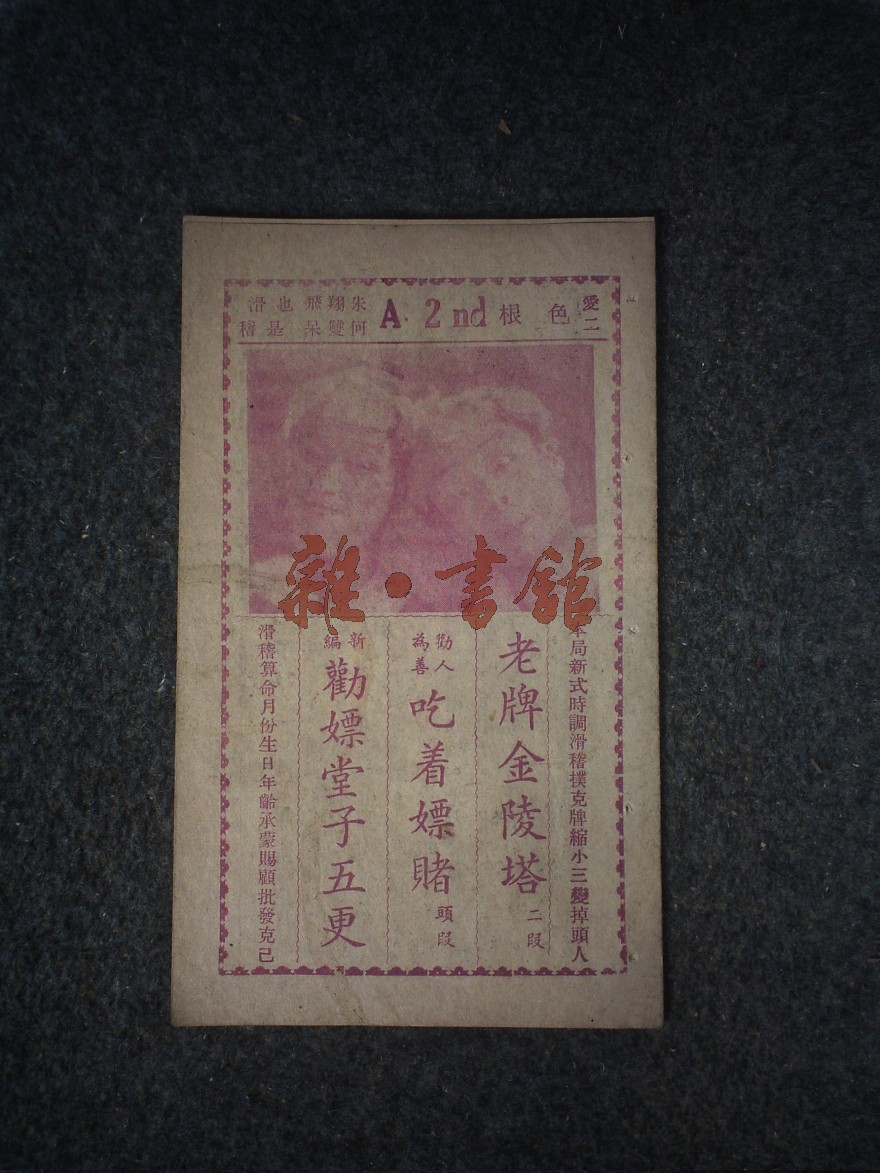 愛二 色 根 A 2nd 朱翔飛也滑
何雙呆是稽
雜·書館
本局新式時調滑稽撲克牌縮小三變掉頭人
老牌金陵塔 二段
勸人為善 吃着嫖賭 頭段
新編 勸嫖堂子五更
滑稽算命月份生日年齡承蒙賜顧批發克己